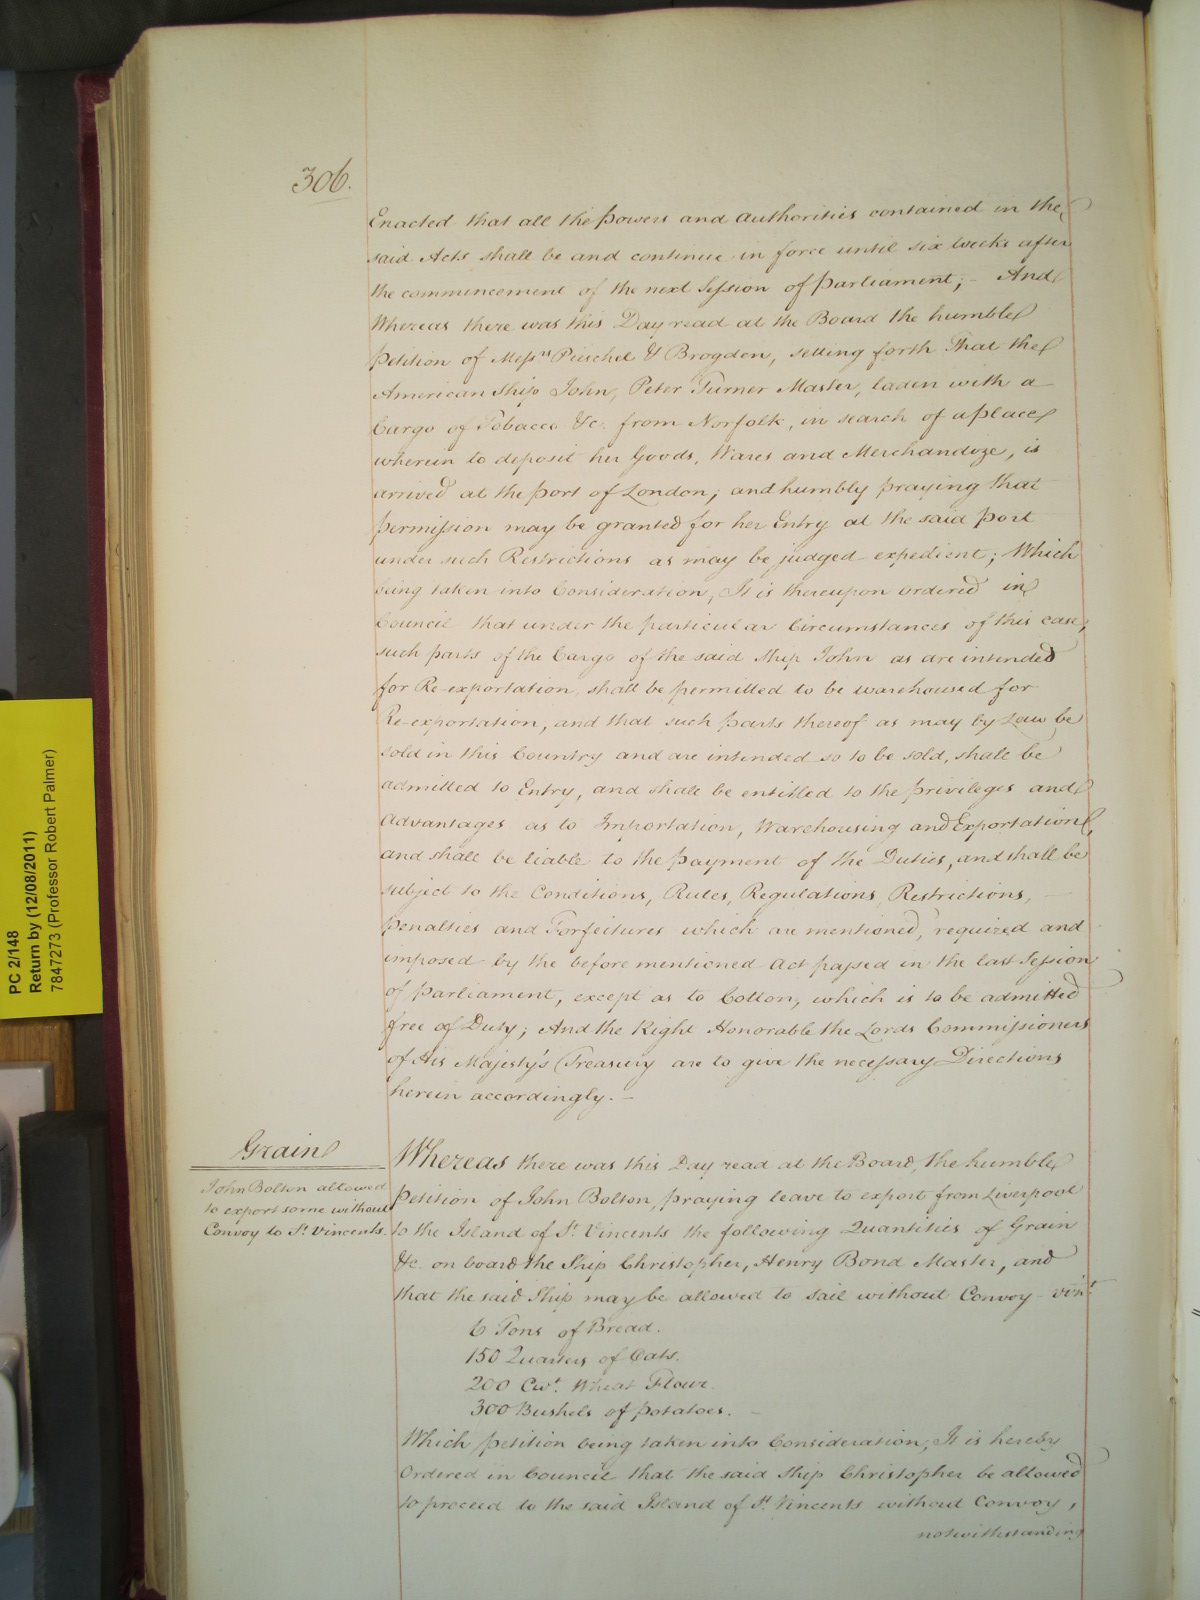 306.
Enacted that all the Powers and Authorities contained in the
said Acts shall be and continue in force until six Weeks after
the commencement of the next Session of Parliament; - And
Whereas there was this Day read at the Board the humble
Petition of Messrs Pieschel & Brogden, setting forth That the
American Ship John, Peter Turner Master, laden with a
Cargo of Tobacco &c. from Norfolk, in search of a place
wherein to deposit her Goods, Wares and Merchandize, is
arrived at the Port of London; and humbly praying that
permission may be granted for her Entry at the said Port
under such Restrictions as may be judged expedient; Which
being taken into Consideration, It is thereupon ordered in
Council that under the particular Circumstances of this case,
such parts of the Cargo of the said Ship John as are intended
for Re-exportation, shall be permitted to be warehoused for
Re-exportation, and that such parts thereof as may by Law be
sold in this Country and are intended so to be sold, shall be
admitted to Entry, and shall be entitled to the privileges and
Advantages as to Importation, Warehousing and Exportation,
and shall be liable to the payment of the Duties, and shall be
subject to the Conditions, Rules, Regulations, Restrictions,
Penalties and Forfeitures which are mentioned, required and
imposed by the before mentioned Act passed in the last Session
of Parliament, except as to Cotton, which is to be admitted
free of Duty; And the Right Honorable the Lords Commissioners
of His Majesty's Treasury are to give the necessary Directions
herein accordingly. -
Grain
John Bolton allowed
to export some without
Convoy to St. Vincents.
Whereas there was this Day read at the Board, the humble
Petition of John Bolton, praying leave to export from Liverpool
to the Island of St. Vincents the following Quantities of Grain
&c. on board the Ship Christopher, Henry Bond Master, and
that the said Ship may be allowed to sail without Convoy - vizt.
6 Tons of Bread.
150 Quarters of Oats.
200 Cwt. Wheat Flour.
300 Bushels of Potatoes. -
Which Petition being taken into Consideration, It is hereby
Ordered in Council that the said Ship Christopher be allowed
to proceed to the said Island of St. Vincents without Convoy,
notwithstanding
PC 2/148
Return by (12/08/2011)
7847273 (Professor Robert Palmer)